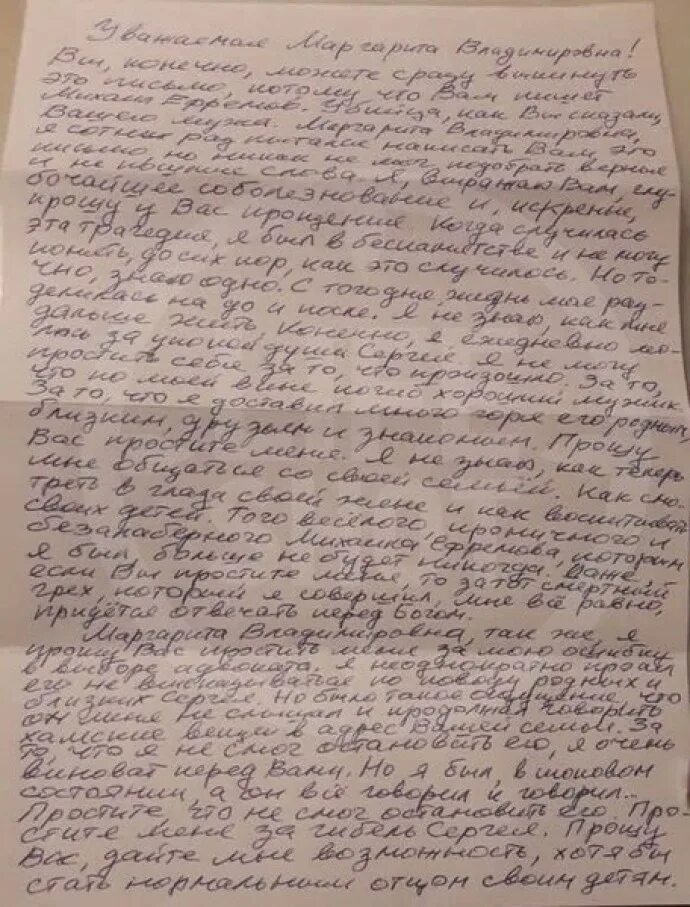 Уважаемая Маргарита Владимировна!
Вы, конечно, можете сразу выкинуть
это письмо, потому что Вам пишет
Михаил Ефремов. Убийца, как Вы сказали,
Вашего мужа. Маргарита Владимировна,
я сотни раз пытался написать Вам это
письмо, но никак не мог подобрать верные
и не пышные слова. Я, выражаю Вам, глу-
бочайшее соболезнование и, искренне,
прошу у Вас прощение. Когда случилась
эта трагедия, я был в беспамятстве и не могу
понять, до сих пор, как это случилось. Но то-
чно, знаю одно. С того дня жизнь моя раз-
делилась на до и после. Я не знаю, как мне
дальше жить. Конечно, я ежедневно мо-
люсь за упокой души Сергея. Я не могу
простить себя за то, что произошло. За то,
что по моей вине погиб хороший мужик.
За то, что я доставил много горя его родным,
близким, друзьям и знакомым. Прошу
Вас простите меня. Я не знаю, как теперь
мне общаться со своей семьёй. Как смо-
треть в глаза своей жене и как воспитывать
своих детей. Того весёлого, ироничного и
безалаберного Михаила Ефремова, которым
я был, больше не будет никогда. Даже,
если Вы простите меня, то за тот смертный
грех, который я совершил, мне всё равно,
придётся отвечать перед Богом.
Маргарита Владимировна, так же, я
прошу Вас простить меня за мою ошибку
в выборе адвоката. Я неоднократно просил
его не высказываться по поводу родных и
близких Сергея. Но было такое ощущение, что
он меня не слышал и продолжал говорить
хамские вещи в адрес Вашей семьи. За
то, что я не смог остановить его, я очень
виноват перед Вами. Но я был, в шоковом
состоянии, а он всё говорил и говорил...
Простите, что не смог остановить его. Про-
стите меня за гибель Сергея. Прошу
Вас, дайте мне возможность, хотя бы
стать нормальным отцом своим детям.